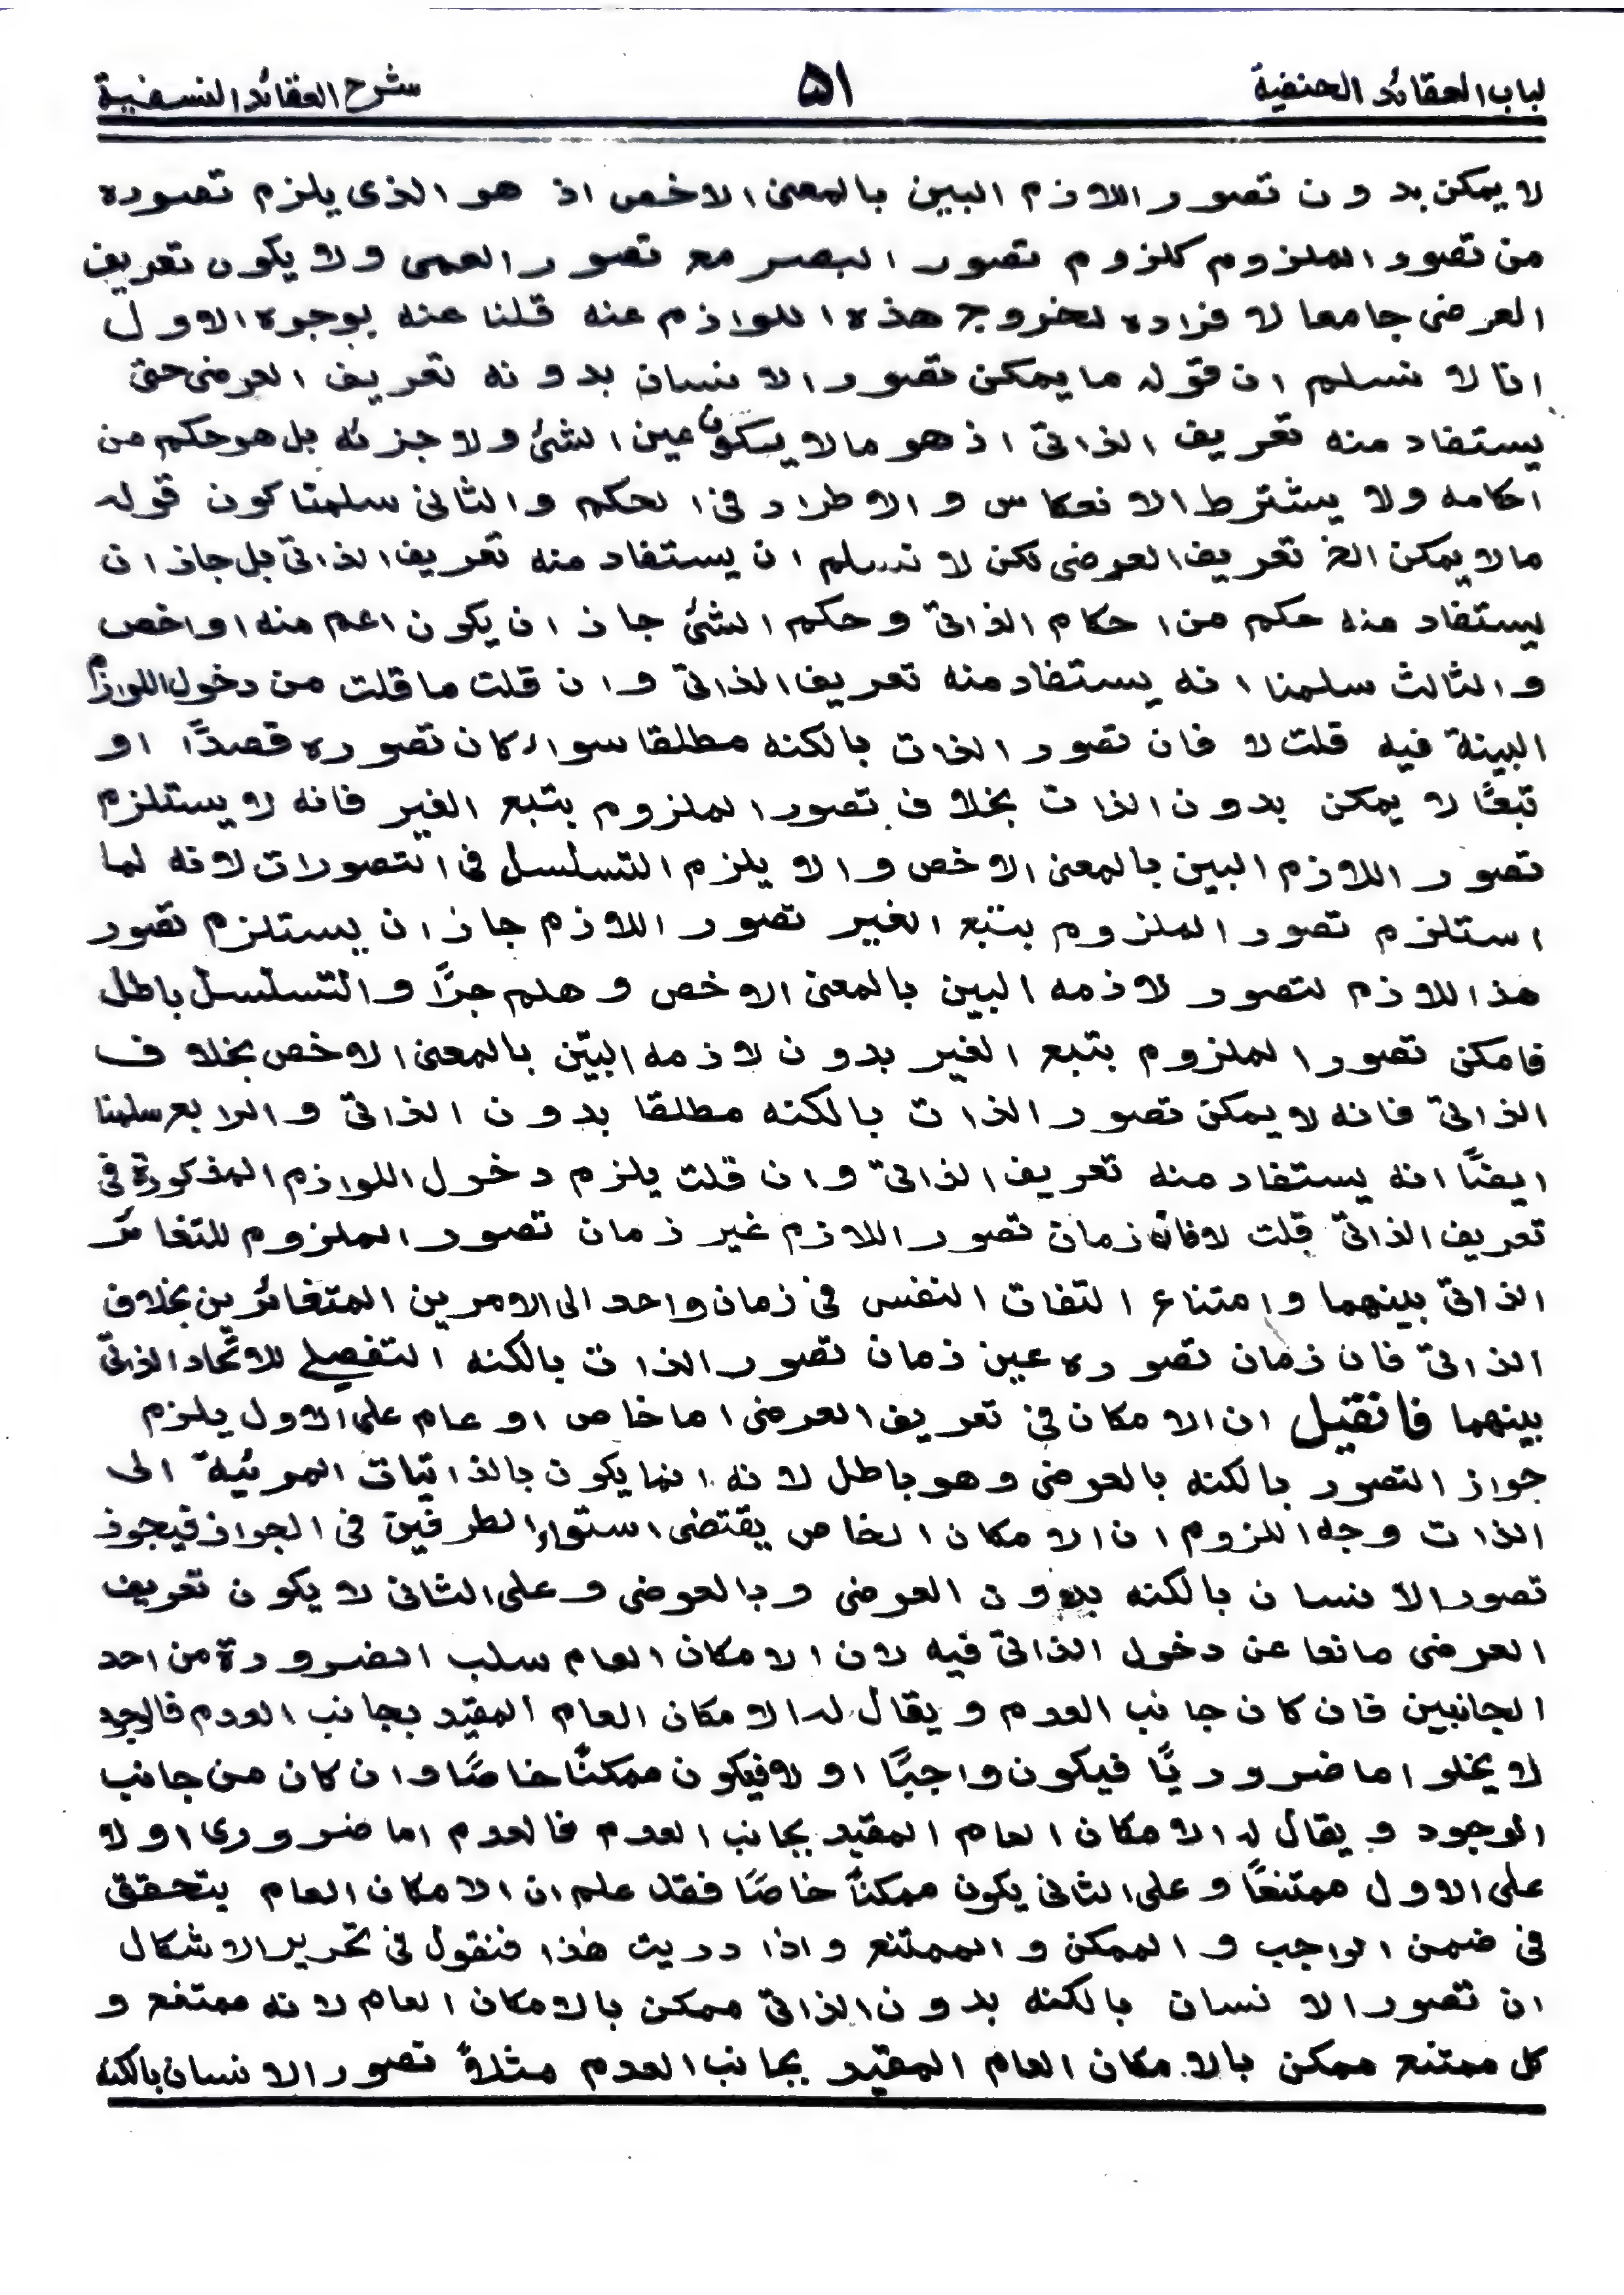 لباب العقائد الحنفية ۵۱ شرح العقائد النسفية
لا يمكن بدون تصور اللازم البين بالمعنى الاخص اذ هو الذى يلزم تصوره
من تصور الملزوم كلزوم تصور البصر مع تصور العمى ولا يكون تعريف
العرضى جامعا لافراده لخروج هذه اللوازم عنه قلنا عنه بوجوه الاول
انا لا نسلم ان قوله ما يمكن تصور الانسان بدونه تعريف العرضى حتى
يستفاد منه تعريف الذاتى اذ هو ما لا يكون عين الشئ ولا جزئه بل هو حكم من
احكامه ولا يشترط الانعكاس والاطراد فى الحكم والثانى سلمنا كون قوله
ما لا يمكن الخ تعريف العرضى لكن لا نسلم ان يستفاد منه تعريف الذاتى بل جاز ان
يستفاد منه حكم من احكام الذاتى وحكم الشئ جاز ان يكون اعم منه او اخص
والثالث سلمنا انه يستفاد منه تعريف الذاتى وان قلت ما قلت من دخول اللوازم
البينة فيه قلت لا فان تصور الذات بالكنه مطلقا سواء كان تصوره قصدًا او
تبعًا لا يمكن بدون الذات بخلاف تصور الملزوم بتبع الغير فانه لا يستلزم
تصور اللازم البين بالمعنى الاخص والا يلزم التسلسل فى التصورات لانه لما
استلزم تصور الملزوم بتبع الغير تصور اللازم جاز ان يستلزم تصور
هذا اللازم لتصور لازمه البين بالمعنى الاخص وهلم جرًّا والتسلسل باطل
فامكن تصور الملزوم بتبع الغير بدون لازمه البيّن بالمعنى الاخص بخلاف
الذاتى فانه لا يمكن تصور الذات بالكنه مطلقا بدون الذاتى والرابع سلمنا
ايضًا انه يستفاد منه تعريف الذاتى وان قلت يلزم دخول اللوازم المذكورة فى
تعريف الذاتى قلت لا فان زمان تصور اللازم غير زمان تصور الملزوم للتغائر
الذاتى بينهما وامتناع التفات النفس فى زمان واحد الى الامرين المتغائرين بخلاف
الذاتى فان زمان تصوره عين زمان تصور الذات بالكنه التفصيلے للاتحاد الذاتى
بينهما فان قيل ان الامكان فى تعريف العرضى اما خاص او عام على الاول يلزم
جواز التصور بالكنه بالعرضى وهو باطل لانه انما يكون بالذاتيات المرئية الى
الذات وجه اللزوم ان الامكان الخاص يقتضى استواء الطرفين فى الجواز فيجوز
تصور الانسان بالكنه بدون العرضى وبالعرضى وعلى الثانى لا يكون تعريف
العرضى مانعا عن دخول الذاتى فيه لان الامكان العام سلب الضرورة من احد
الجانبين فان كان جانب العدم ويقال له الامكان العام المقيّد بجانب العدم فالوجود
لا يخلو اما ضروريًّا فيكون واجبًا او لا فيكون ممكنًا خاصًا وان كان من جانب
الوجود ويقال له الامكان العام المقيد بجانب العدم فالعدم اما ضرورى او لا
على الاول ممتنعًا وعلى الثانى يكون ممكنًا خاصًا فقد علم ان الامكان العام يتحقق
فى ضمن الواجب والممكن والممتنع واذا دريت هٰذا فنقول فى تحرير الاشكال
ان تصور الانسان بالكنه بدون الذاتى ممكن بالامكان العام لانه ممتنع و
كل ممتنع ممكن بالامكان العام المقيّد بجانب العدم مثلاً تصور الانسان بالكنه